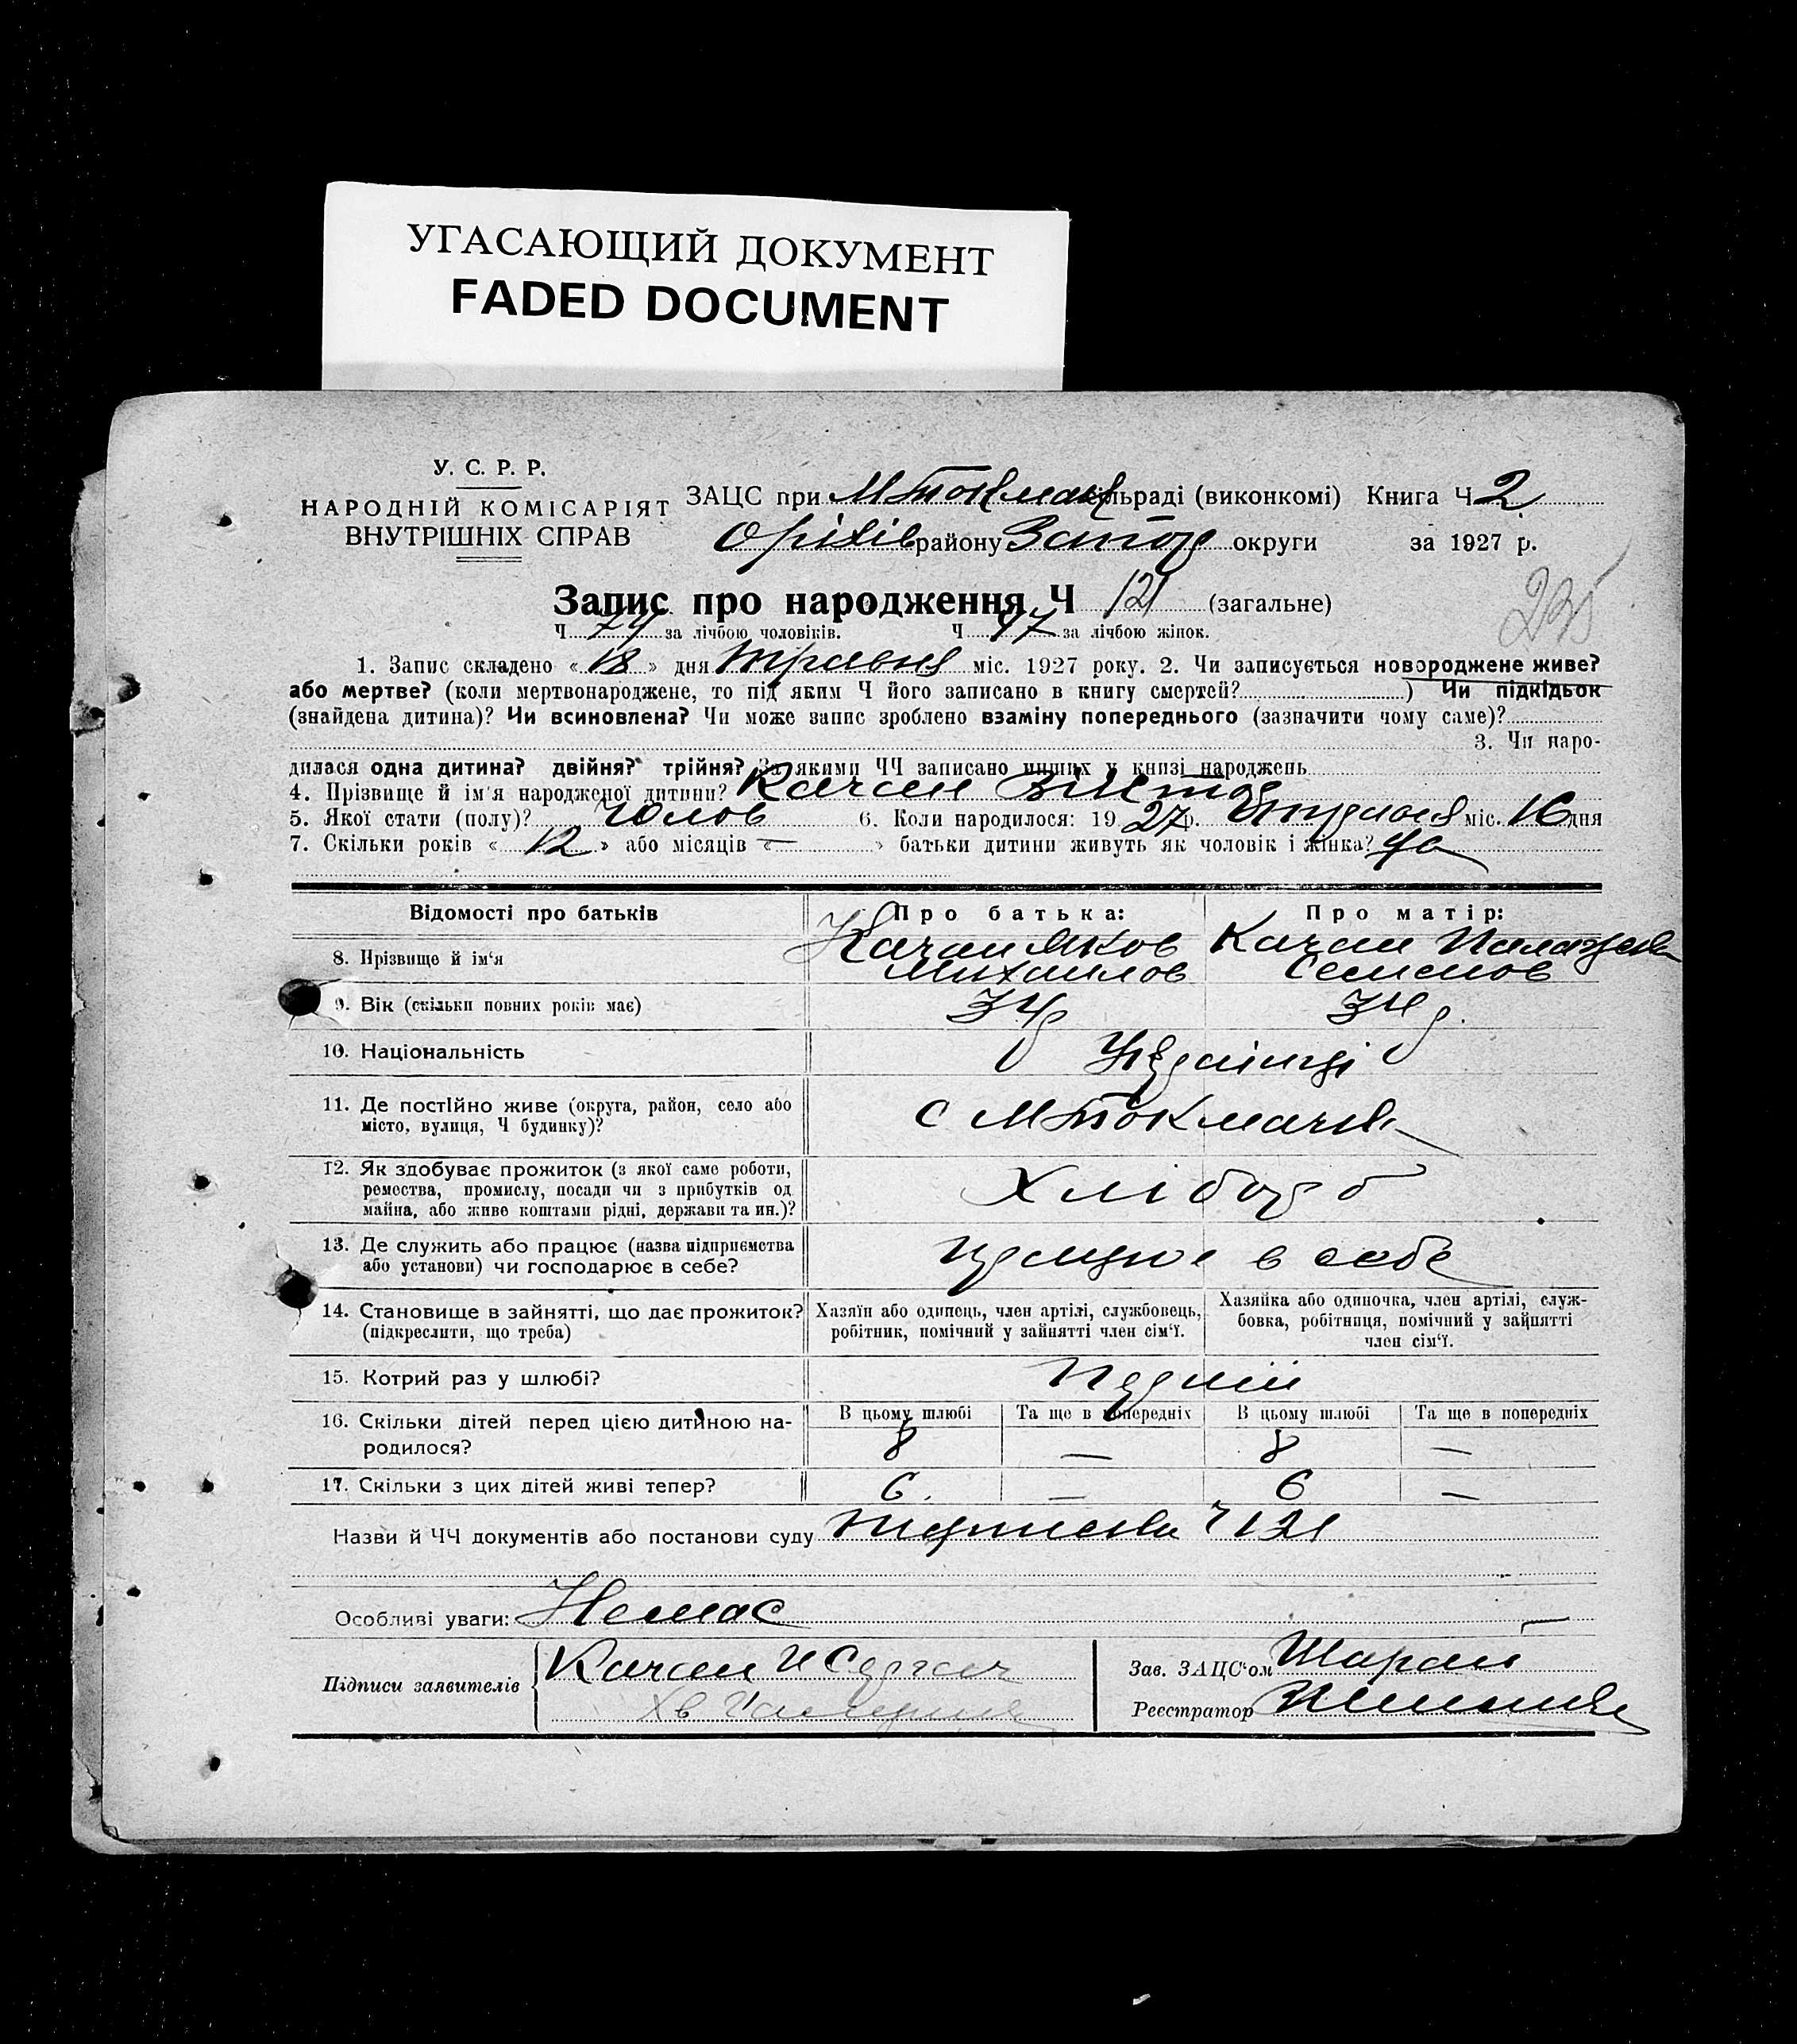 УГАСАЮЩИЙ ДОКУМЕНТ
FADED DOCUMENT
У. С. Р. Р.
НАРОДНІЙ КОМІСАРІЯТ
ВНУТРІШНІХ СПРАВ
ЗАЦС при М Токмач сільраді (виконкомі) Книга Ч 2
Оріхів району Запор округи за 1927 р.
235
Запис про народження Ч 121 (загальне)
Ч 74 за лічбою чоловіків. Ч 47 за лічбою жінок.
1. Запис складено « 18 » дня травня міс. 1927 року. 2. Чи записується новороджене живе?
або мертве? (коли мертвонароджене, то під яким Ч його записано в книгу смертей? ) Чи підкідьок
(знайдена дитина)? Чи всиновлена? Чи може запис зроблено взаміну попереднього (зазначити чому саме)?
3. Чи наро-
дилася одна дитина? двійня? трійня? За якими ЧЧ записано инших у книзі народжень
4. Прізвище й ім'я народженої дитини? Качан Віктор
5. Якої стати (полу)? Чолов 6. Коли народилося: 19 27 р. травня міс. 16 дня
7. Скільки років « 12 » або місяців « — » батьки дитини живуть як чоловік і жінка?
Відомості про батьків Про батька: Про матір:
8. Прізвище й ім'я Качан Яков Михаилов Качан Палажка Семенов
9. Вік (скільки повних років має) 34 р 34 р.
10. Національність Українці
11. Де постійно живе (округа, район, село або
місто, вулиця, Ч будинку)? С М Токмачка
12. Як здобуває прожиток (з якої саме роботи,
ремества, промислу, посади чи з прибутків од
майна, або живе коштами рідні, держави та ин.)? Хлібороб
13. Де служить або працює (назва підприємства
або установи) чи господарює в себе? працює в себе
14. Становище в зайнятті, що дає прожиток?
(підкреслити, що треба)
Хазяїн або одинець, член артілі, службовець,
робітник, помічний у зайнятті член сім'ї.
Хазяйка або одиночка, член артілі, служ-
бовка, робітниця, помічний у зайнятті
член сім'ї.
15. Котрий раз у шлюбі?
16. Скільки дітей перед цією дитиною на-
родилося?
В цьому шлюбі Та ще в попередніх В цьому шлюбі Та ще в попередніх
8 — 8 —
17. Скільки з цих дітей живі тепер? 6 — 6 —
Назви й ЧЧ документів або постанови суду Ч 121
Особливі уваги: Немає
Підписи заявителів Качан
Зав. ЗАЦС'ом Шарай
Реєстратор